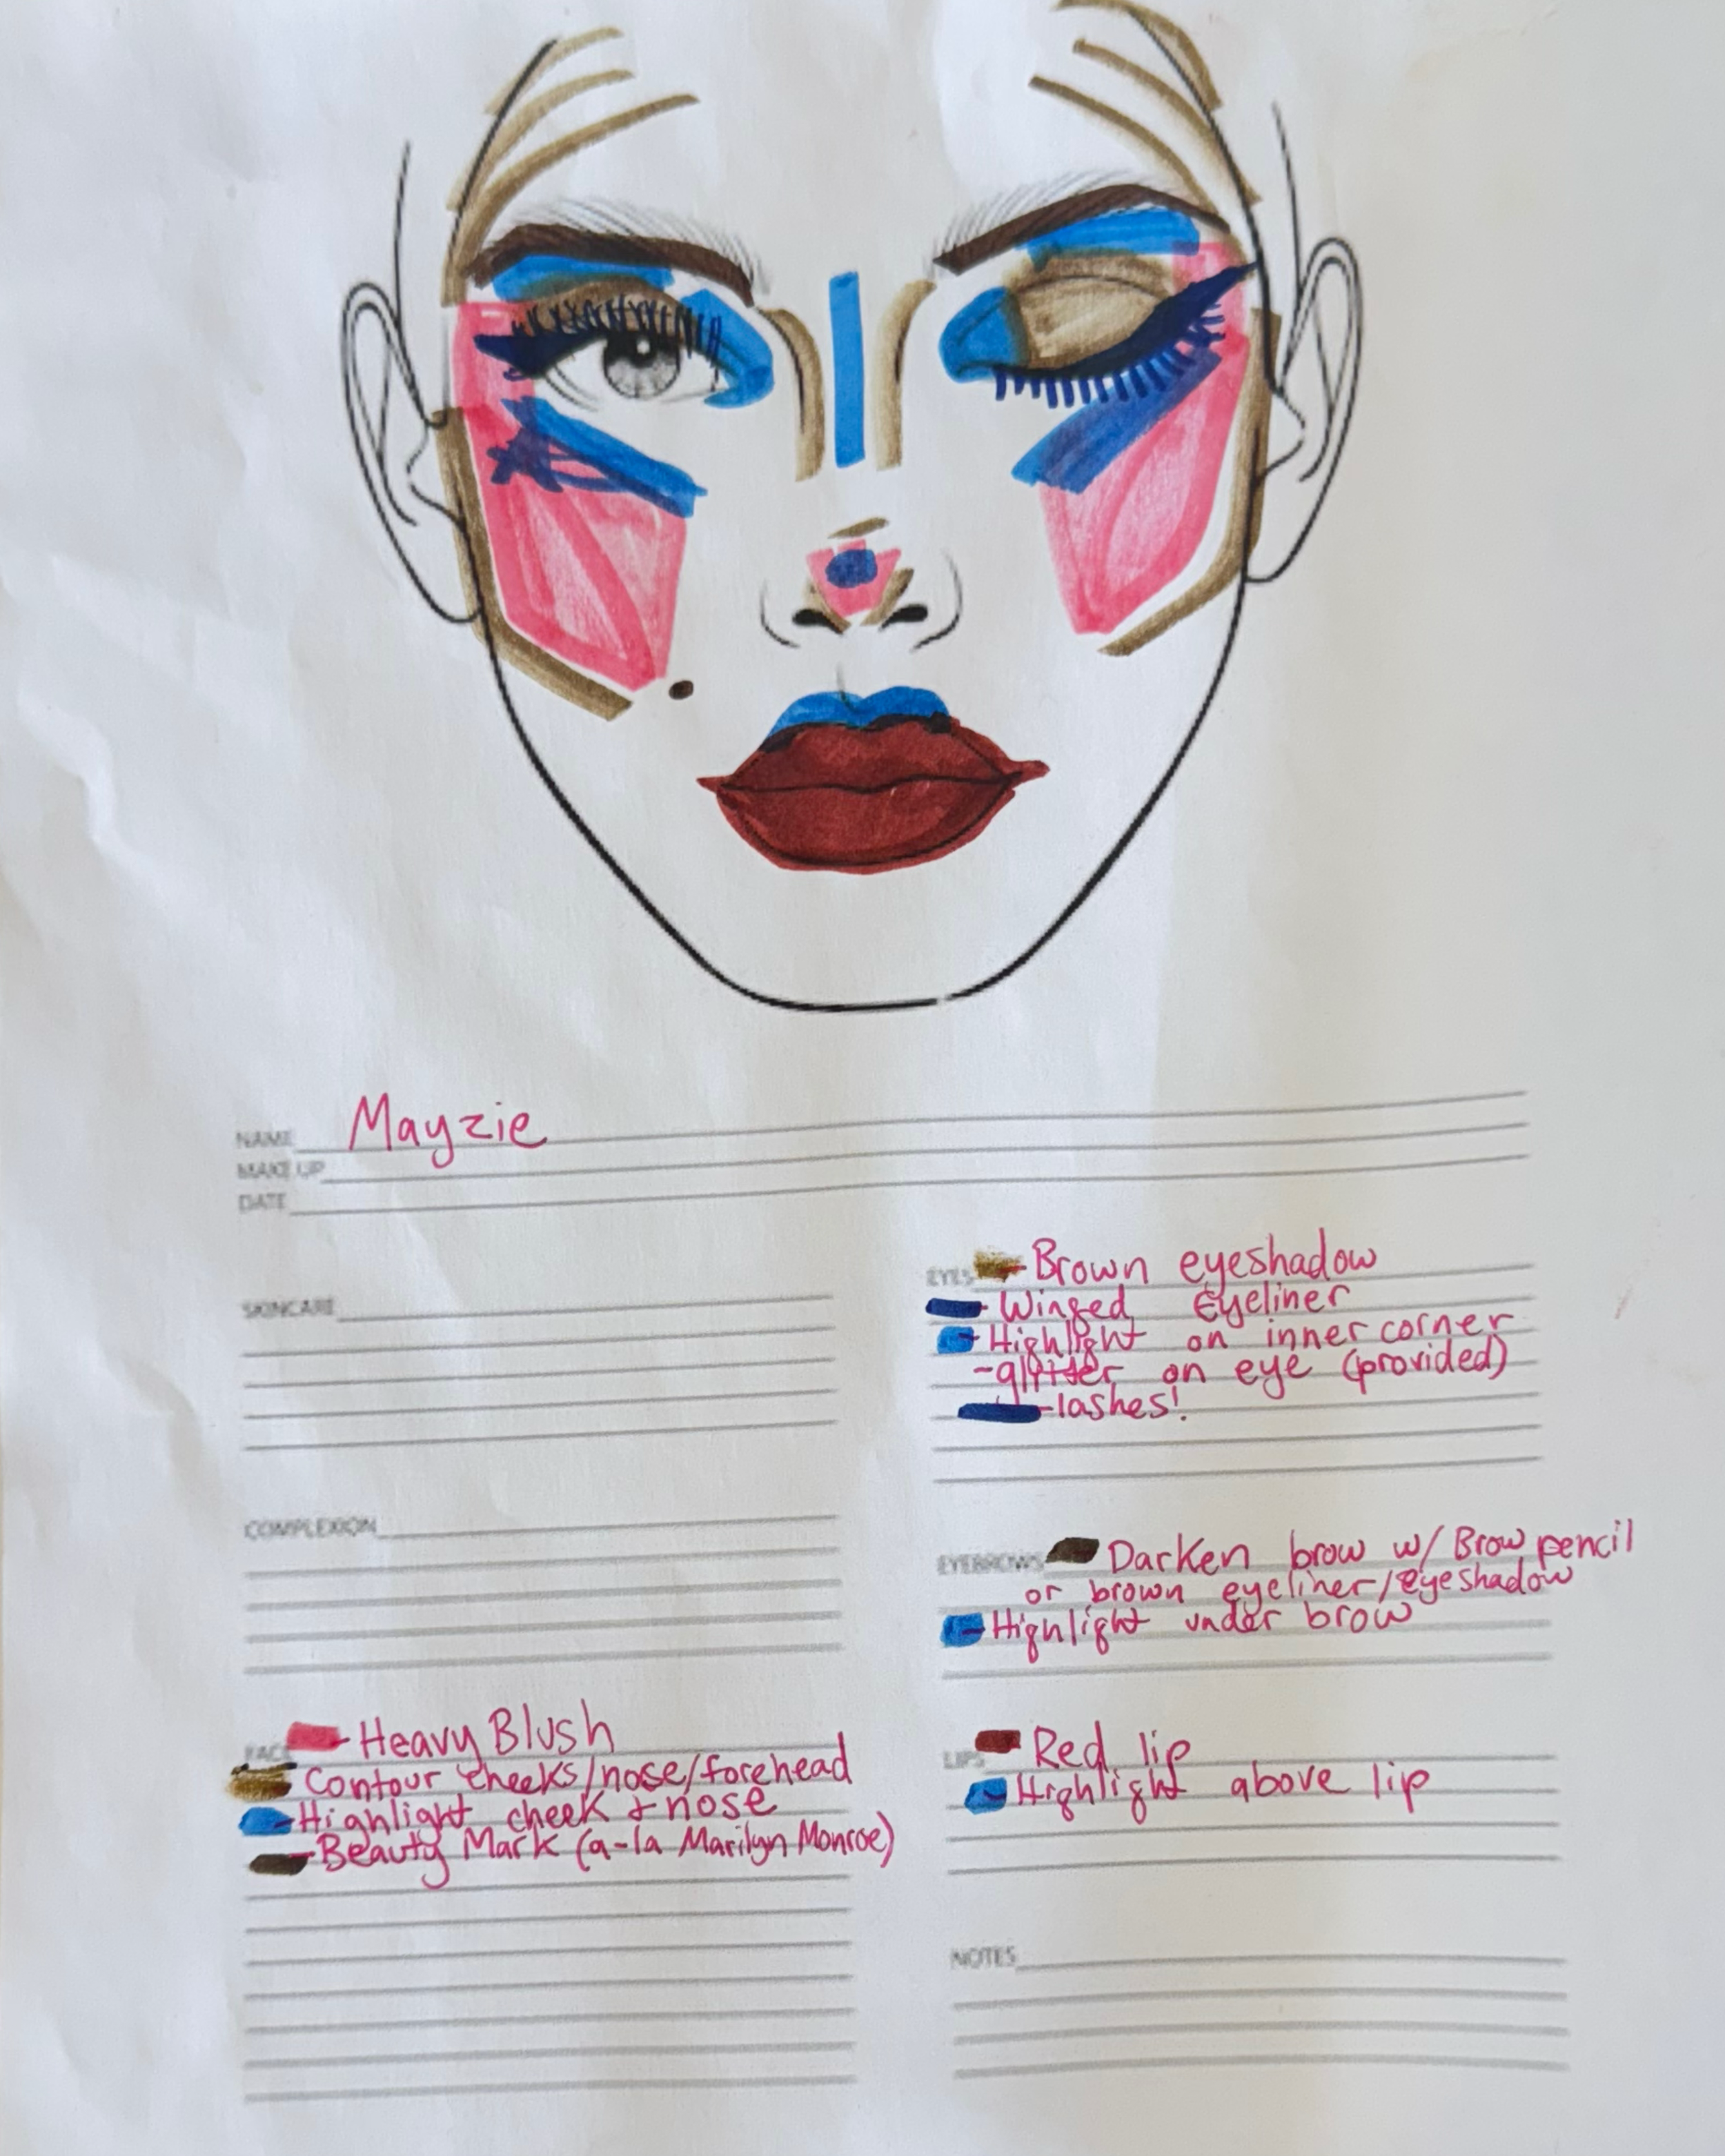 NAME Mayzie
MAKE UP
DATE
SKINCARE
COMPLEXION
FACE - Heavy Blush
Contour cheeks/nose/forehead
- Highlight cheek + nose
- Beauty Mark (a-la Marilyn Monroe)
EYES - Brown eyeshadow
- Winged Eyeliner
- Highlight on inner corner
- glitter on eye (provided)
- lashes!
EYEBROWS - Darken brow w/ Brow pencil
or brown eyeliner/eyeshadow
- Highlight under brow
LIPS - Red lip
- Highlight above lip
NOTES